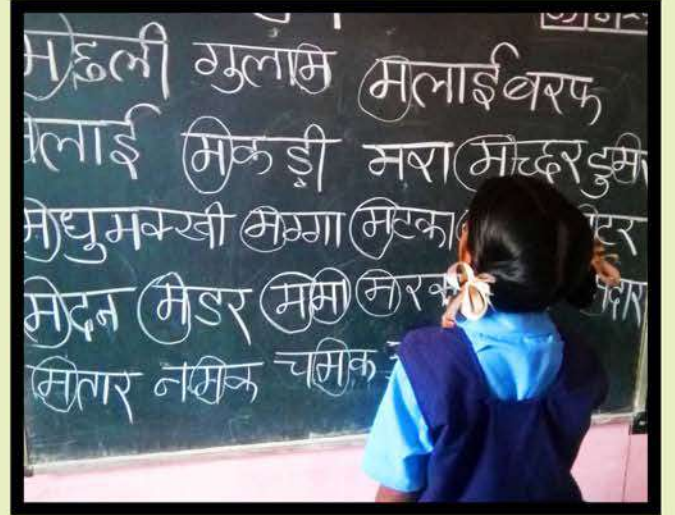 मछली गुलाम मलाईबरफ
मलाई मकड़ी मषा मच्छर डुम
मधुमक्खी मग्गा मटका टर
मदन मडर ममा मरक दार
मतार नमक चमक